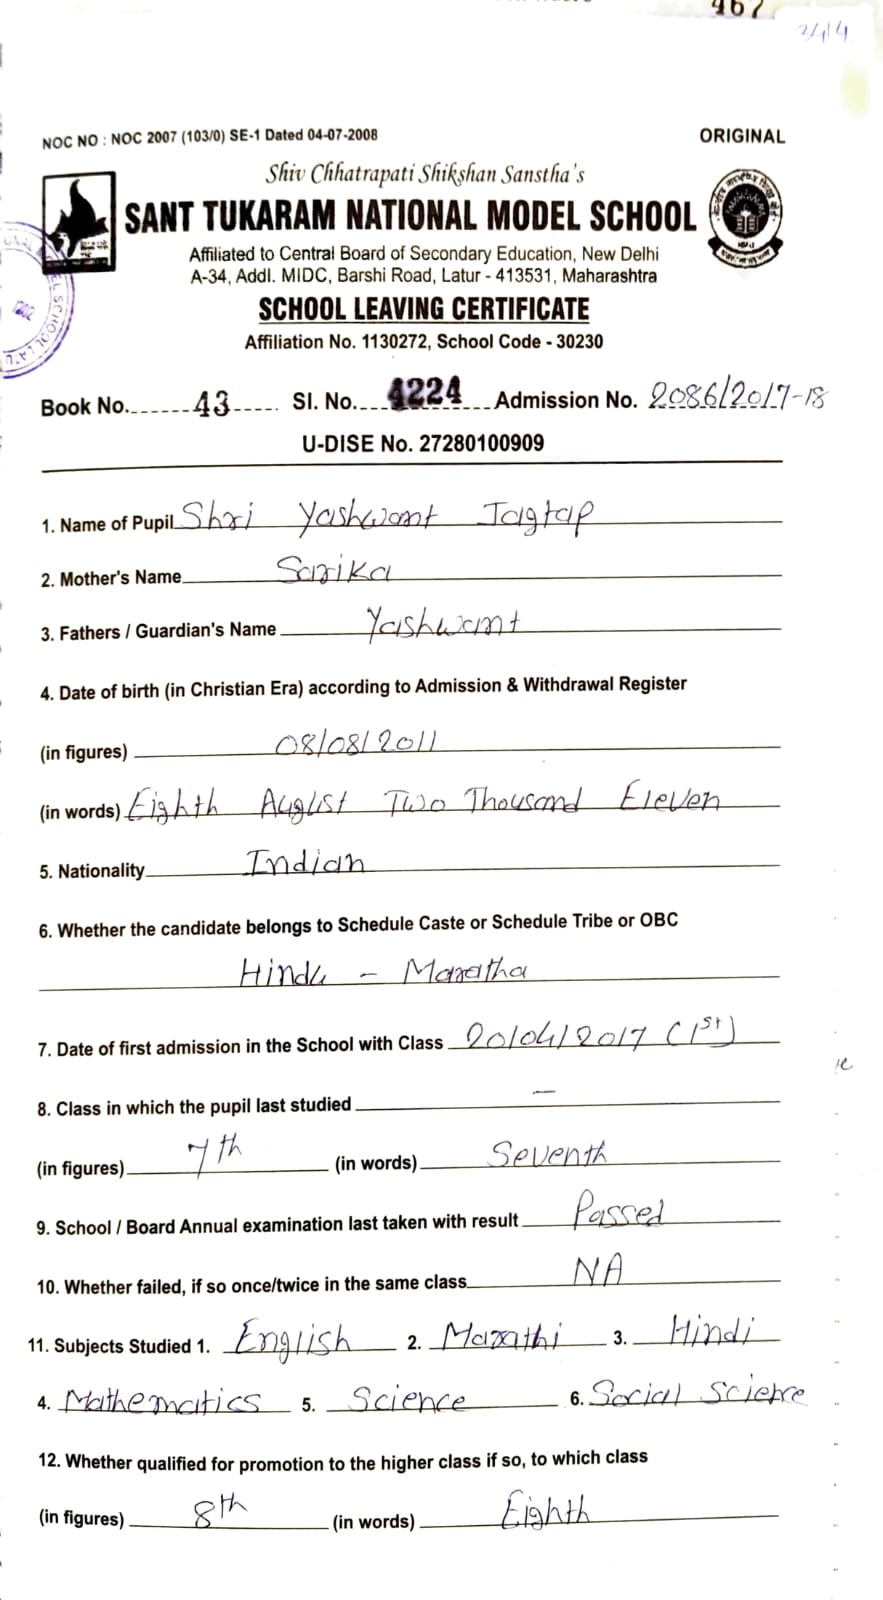 467
NOC NO : NOC 2007 (103/0) SE-1 Dated 04-07-2008 ORIGINAL
Shiv Chhatrapati Shikshan Sanstha's
SANT TUKARAM NATIONAL MODEL SCHOOL
Affiliated to Central Board of Secondary Education, New Delhi
A-34, Addl. MIDC, Barshi Road, Latur - 413531, Maharashtra
SCHOOL LEAVING CERTIFICATE
Affiliation No. 1130272, School Code - 30230
Book No. 43 Sl. No. 4224 Admission No. 2086/2017-18
U-DISE No. 27280100909
1. Name of Pupil Shri Yashwant Jagtap
2. Mother's Name Sarika
3. Fathers / Guardian's Name Yashwant
4. Date of birth (in Christian Era) according to Admission & Withdrawal Register
(in figures) 08/08/2011
(in words) Eighth August Two Thousand Eleven
5. Nationality Indian
6. Whether the candidate belongs to Schedule Caste or Schedule Tribe or OBC
Hindu - Maratha
7. Date of first admission in the School with Class 20/04/2017 (1st)
8. Class in which the pupil last studied —
(in figures) 7th (in words) Seventh
9. School / Board Annual examination last taken with result Passed
10. Whether failed, if so once/twice in the same class NA
11. Subjects Studied 1. English 2. Marathi 3. Hindi
4. Mathematics 5. Science 6. Social Science
12. Whether qualified for promotion to the higher class if so, to which class
(in figures) 8th (in words) Eighth